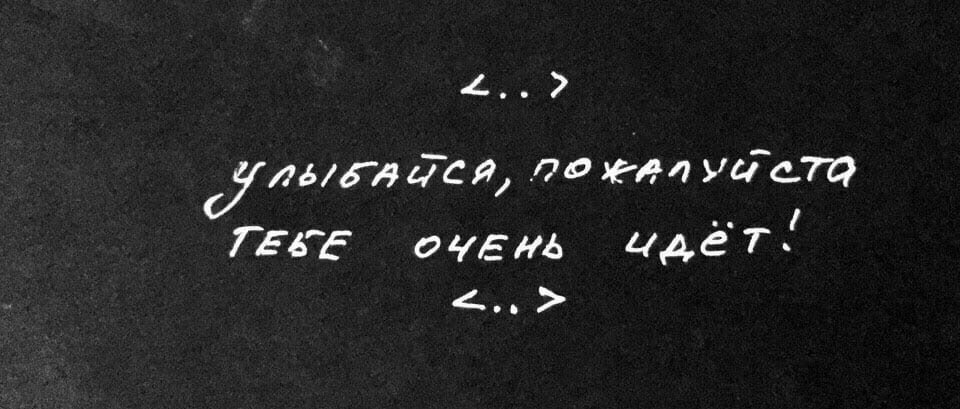 <..>
улыбайся, пожалуйста
тебе очень идёт!
<..>